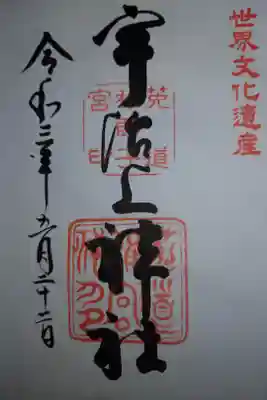 世界文化遺産
宇治上神社
令和三年五月二十二日